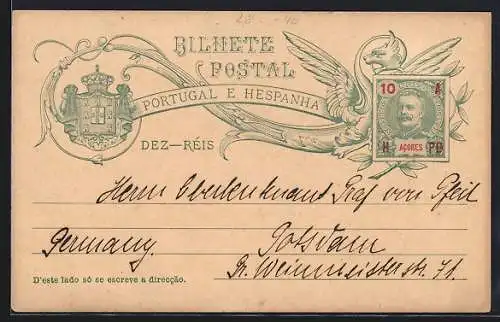 BILHETE
POSTAL
PORTUGAL E HESPANHA
DEZ—RÉIS
10 A
AÇORES
H PD
Herrn Oberleutnant Graf von Pfeil
Germany. Potsdam
Gr. Weinmeisterstr. 71.
D'este lado só se escreve a direcção.